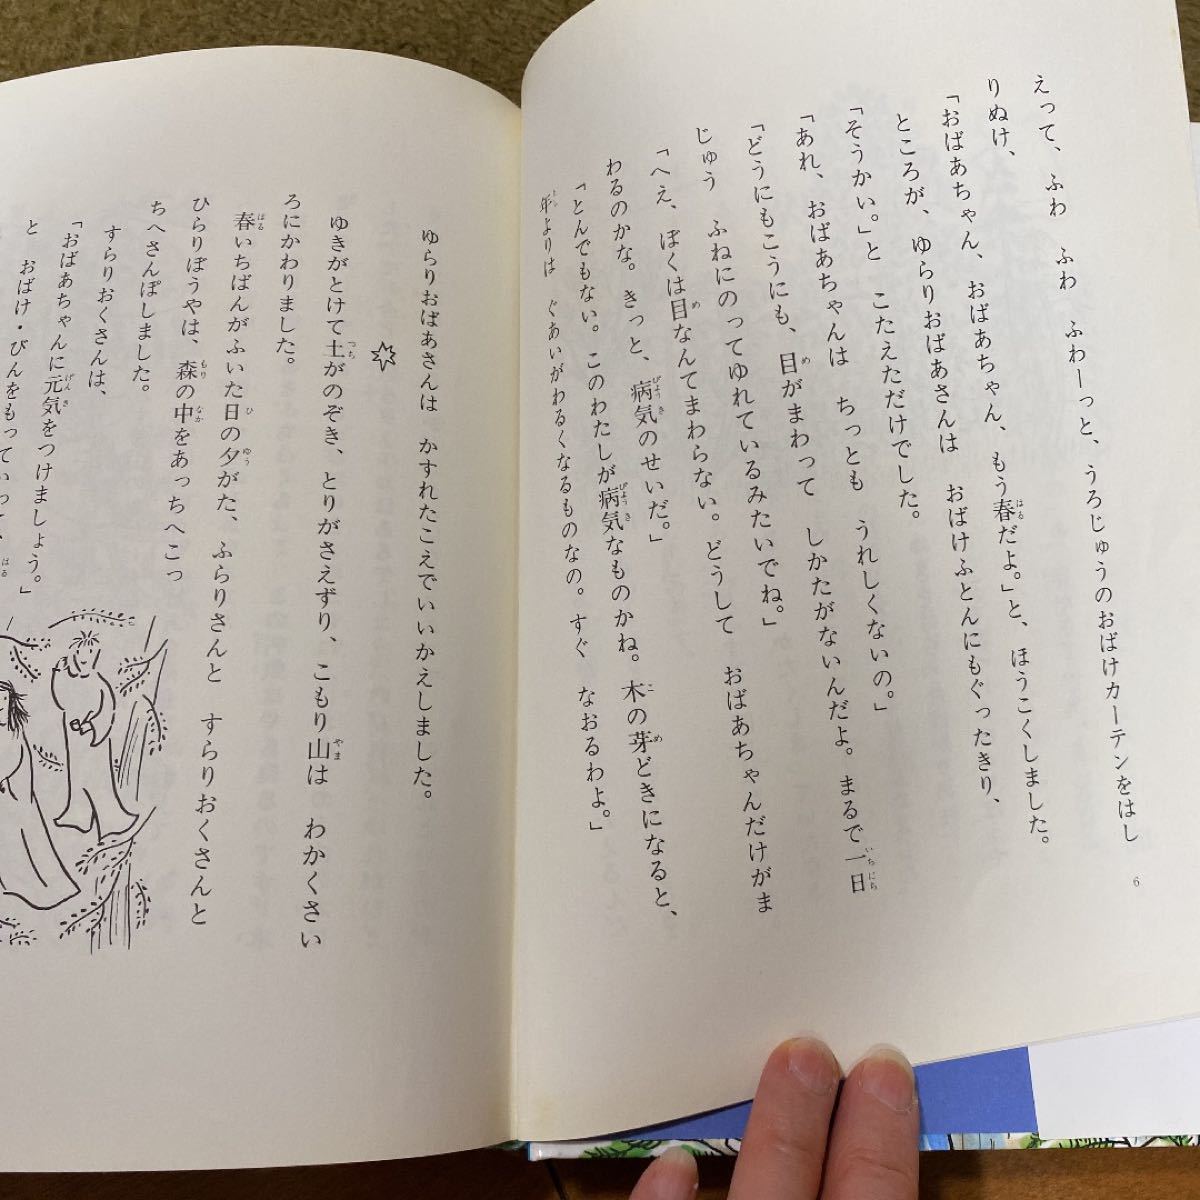 えって、ふわ　ふわ　ふわーっと、うろじゅうのおばけカーテンをはし
りぬけ、
「おばあちゃん、おばあちゃん、もう春だよ。」と、ほうこくしました。
ところが、ゆらりおばあさんは　おばけふとんにもぐったきり、
「そうかい。」と　こたえただけでした。
「あれ、おばあちゃんは　ちっとも　うれしくないの。」
「どうにもこうにも、目がまわって　しかたがないんだよ。まるで一日
じゅう　ふねにのってゆれているみたいでね。」
「へえ、ぼくは目なんてまわらない。どうして　おばあちゃんだけがま
わるのかな。きっと、病気のせいだ。」
「とんでもない。このわたしが病気なものかね。木の芽どきになると、
年よりは　ぐあいがわるくなるものなの。すぐ　なおるわよ。」
6
ゆらりおばあさんは　かすれたこえでいいかえしました。
ゆきがとけて土がのぞき、とりがさえずり、こもり山は　わかくさい
ろにかわりました。
春いちばんがふいた日の夕がた、ふらりさんと　すらりおくさんと
ひらりぼうやは、森の中をあっちへこっ
ちへさんぽしました。
すらりおくさんは、
「おばあちゃんに元気をつけましょう。」
と　おばけ・びんをもっていって、